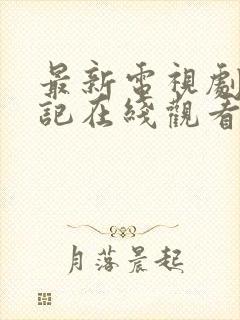 最新電視劇
記在綫觀看
月落晨起